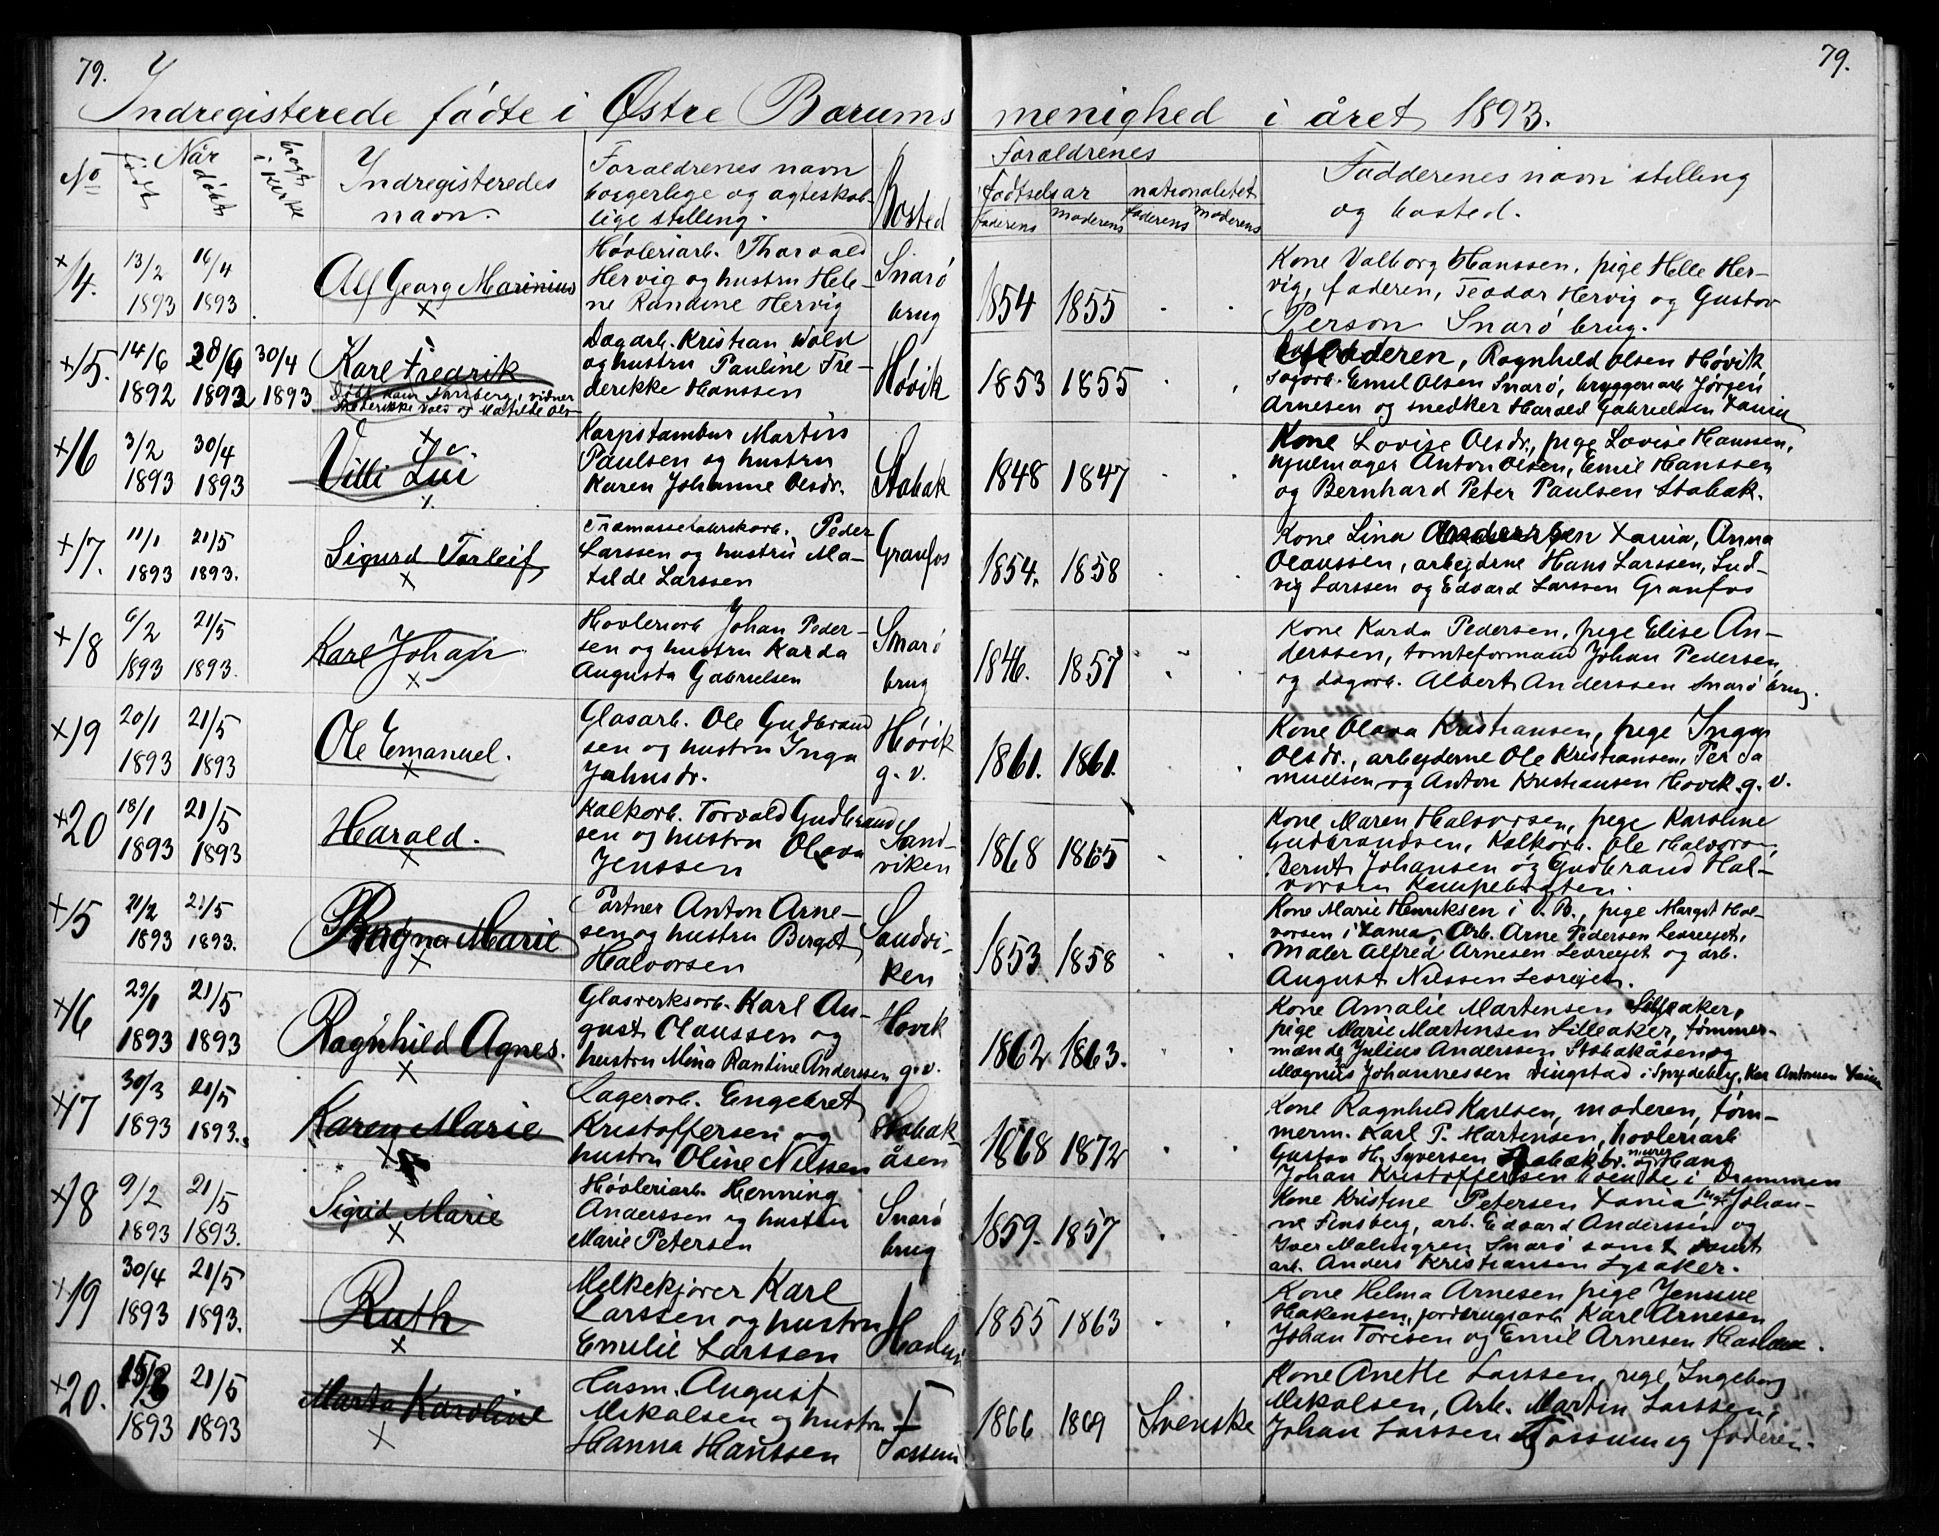 79.
79.
Indregisterede fødte i Østre Bærums menighed i året 1893.
No
Når
født
døbt
i kirke
Indregisteredes
navn.
Forældrenes navn
borgerlige og ægteskab-
lige stilling.
Bosted
Forældrenes
fødselsår
faderens
moderens
nationalitet
faderens
moderens
Fadderenes navn stilling
og bosted.
+14.
13/2
1893
16/4
1893
Alf Georg Marinius
Høvleriarb. Thorvald
Hervig og hustru Hele-
ne Randine Hervig
Snarø
brug
1854
1855
Kone Valborg Hanssen, pige Helle Her-
vig, faderen, Teodor Hervig og Gustav
Person Snarø brug.
+15.
14/6
1892
28/6
1892
30/4
1893
Karl Fredrik
Dagarb. Kristian Wold
og hustru Pauline Fre-
derikke Hanssen
Høvik
1853
1855
Moderen, Ragnhild Olsen Høvik
Sagarb. Emil Olsen Snarø, bryggeriarb Jørgen
Arnesen og snedker Harald Gabrielsen Xania
+16
3/2
1893
30/4
1893
Villi
Martin
Paulsen og hustru
Karen Johanne Olsdr.
Stabæk
1848
1847
Kone Lovise Olsdr, pige Lovise Hanssen,
hjulmager Anton Olsen, Emil Hanssen
og Bernhard Peter Paulsen Stabæk.
+17.
11/1
1893
21/5
1893.
Sigurd Torleif
Træmassefabrikarb. Peder
Larssen og hustru Ma-
tilde Larssen
Granfos
1854.
1858
Kone Lina Xania, Anna
Olaussen, arbejderne Hans Larssen, Lud-
vig Larssen og Edvard Larssen Granfos
+18
6/2
1893
21/5
1893.
Karl Johan
Høvleriarb Johan Peder-
sen og hustru Karda
Augusta Gabrielsen
Snarø
brug
1846.
1857
Kone Karda Pedersen, pige Elise An-
derssen, tomteformand Johan Pedersen
og dagarb. Albert Anderssen Snarø brug.
+19
20/1
1893
21/5
1893
Ole Emanuel.
Glasarb. Ole Gudbrand
sen og hustru Inga
Jahnsdr.
Høvik
g. v.
1861.
1861.
Kone Olava Kristiansen, pige Inga
Olsdr., arbejderne Ole Kristiansen, Per Sa
muelsen og Anton Kristiansen Høvik g. v.
+20
18/1
1893
21/5
1893
Harald.
Kalkarb. Torvald Gudbrand
sen og hustru Olava
Jenssen
Sand-
viken
1868
1865
Kone Maren Halvorsen, pige Karoline
Gudbrandsen, Kalkarb. Ole Halvorsen,
Bernt Johansen og Gudbrand Hal-
vorsen
+15
21/2
1893
21/5
1893.
Ragna Marie
Anton Arne-
sen og hustru Bergit
Halvorsen
Sandvi-
ken
1853
1858
Kone Marie Henriksen i V. B., pige Margit Hal-
vorsen i Xania, Arb. Arne Pedersen
Maler Alfred Arnesen og arb.
August Nilssen
+16
29/1
1893
21/5
1893
Ragnhild Agnes.
Glasverksarb. Karl Au-
gust Olaussen og
hustru Mina Rantine Anderssen
Høvik
g. v.
1862
1863.
Kone Amalie Martensen Lilleaker,
pige Marie Martensen Lilleaker, tømmer-
mænd Julius Anderssen Stabækåsen og
Magnus Johannessen Ringstad i Spydeberg,
+17
30/3
1893
21/5
1893.
Karen Marie
Lagerarb. Engebret
Kristoffersen og
hustru Oline Nilssen
Stabæk-
åsen
1868
1872
Kone Ragnhild Karlsen, moderen, tøm-
merm. Karl P. Martensen, høvleriarb
Gustav H. Syversen Stabækbr.
Johan Kristoffersen boende i Drammen
+18
9/2
1893
21/5
1893.
Sigrid Marie
Høvleriarb. Henning
Anderssen og hustru
Marie Petersen
Snarø
brug
1859.
1857
Kone Kristine Petersen Xania Johan-
ne Finsberg, arb. Edvard Anderssen og
Iver Malmgren Snarø samt
arb. Anders Kristiansen Lysaker.
+19
30/4
1893
21/5
1893.
Ruth
Melkekjører Karl
Larssen og hustru
Emelie Larssen
Haslum
1855
1863
Kone Helma Arnesen pige
Hakensen, jordbrugsarb Karl Arnesen
Johan Toresen og Emil Arnesen Haslum.
+20.
1893
21/5
1893
Marta Karoline
Husm. August
Mikalsen og hustru
Hanna Hanssen
Fossum
1866
1869
Svenske
Kone Anette Larssen, pige Ingeborg
Mikalsen, Arb. Martin Larssen,
Johan Larssen Fossum og faderen.